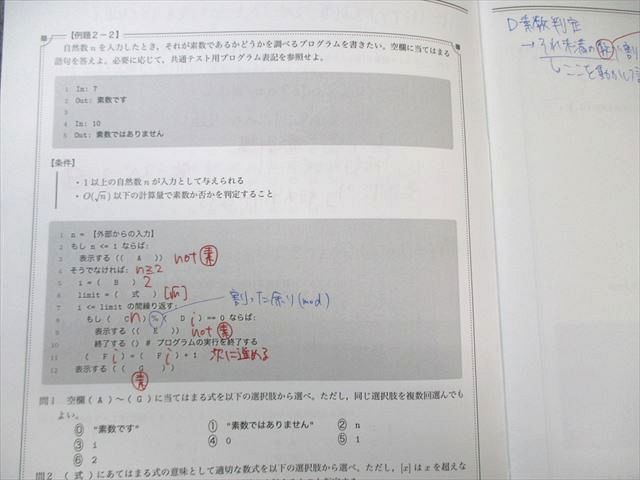 【例題2-2】
自然数 n を入力したとき、それが素数であるかどうかを調べるプログラムを書きたい。空欄に当てはまる
語句を答えよ。必要に応じて、共通テスト用プログラム表記を参照せよ。
1 In: 7
2 Out: 素数です
3
4 In: 10
5 Out: 素数ではありません
【条件】
・1以上の自然数 n が入力として与えられる
・O(√n) 以下の計算量で素数か否かを判定すること
1 n = 【外部からの入力】
2 もし n <= 1 ならば:
3 表示する (( A )) not 素
4 そうでなければ: n≧2
5 i = ( B ) 2
6 limit = ( 式 ) [√n]
7 i <= limit の間繰り返す:
割った余り (mod)
8 もし ( C n ) % ( D i ) == 0 ならば:
9 表示する (( E )) not 素
10 終了する () # プログラムの実行を終了する
11 ( F i ) = ( F i ) + 1 次に進める
12 表示する (( G ))
素
問1 空欄 ( A ) 〜 ( G ) に当てはまる式を以下の選択肢から選べ。ただし、同じ選択肢を複数回選んでも
よい。
⓪ "素数です" ① "素数ではありません" ② n
③ i ④ 0 ⑤ 1
⑥ 2
問2 ( 式 ) にあてはまる式の意味として適切な数式を以下の選択肢から選べ。ただし、[x] は x を超えな
素数判定
→ それ未満の 数 で割り